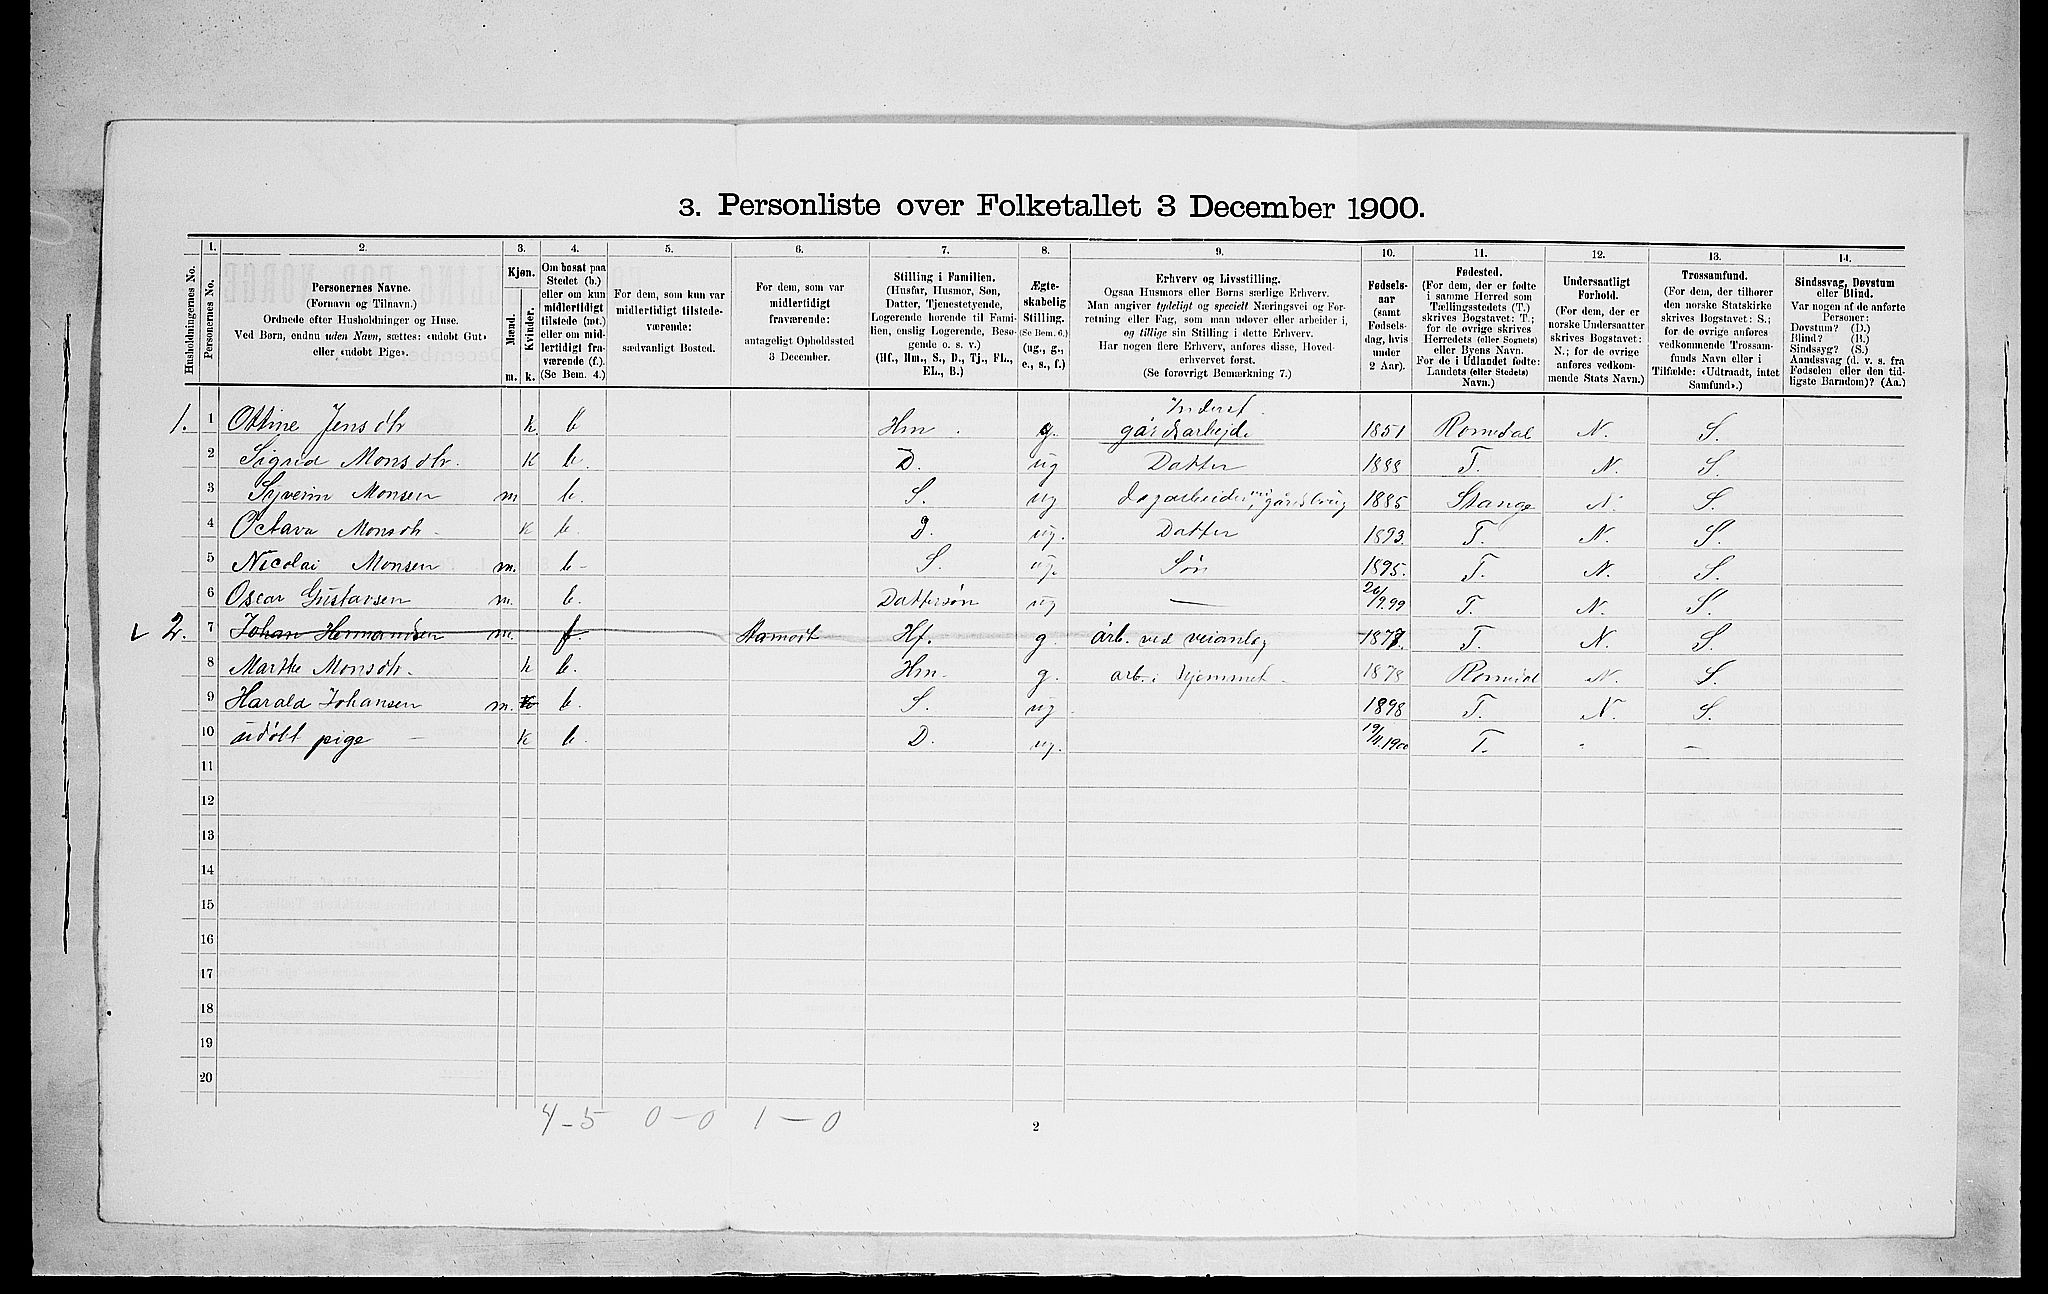 3. Personliste over Folketallet 3 December 1900.
Husholdningernes No.
1.
Personernes No.
2.
Personernes Navne.
(Fornavn og Tilnavn.)
Ordnede efter Husholdninger og Huse.
Ved Børn, endnu uden Navn, sættes: «udøbt Gut»
eller «udøbt Pige».
3.
Kjøn.
Mænd.
Kvinder.
m. k.
4.
Om bosat paa
Stedet (b.)
eller om kun
midlertidigt
tilstede (mt.)
eller om mid-
lertidigt fra-
værende (f.).
(Se Bem. 4.)
5.
For dem, som kun var
midlertidigt tilstede-
værende:
sædvanligt Bosted.
6.
For dem, som var
midlertidigt
fraværende:
antageligt Opholdssted
3 December.
7.
Stilling i Familien.
(Husfar, Husmor, Søn,
Datter, Tjenestetyende,
Logerende hørende til Fami-
lien, enslig Logerende, Besø-
gende o. s. v.)
(Hf., Hm., S., D., Tj., FL.,
EL., B.)
8.
Ægte-
skabelig
Stilling.
(Se Bem. 6.)
(ug., g.,
e., s., f.)
9.
Erhverv og Livsstilling.
Ogsaa Husmors eller Børns særlige Erhverv.
Man angiver tydeligt og specielt Næringsvei og For-
retning eller Fag, som man udøver eller arbeider i,
og tillige sin Stilling i dette Erhverv.
Har nogen flere Erhverv, anføres disse, Hoved-
erhvervet først.
(Se forøvrigt Bemærkning 7.)
10.
Fødsels-
aar
(samt
Fødsels-
dag, hvis
under
2 Aar).
11.
Fødested.
(For dem, der er fødte
i samme Herred som
Tællingsstedets (T.)
skrives Bogstavet: T.;
for de øvrige skrives
Herredets (eller Sognets)
eller Byens Navn.
For de i Udlandet fødte:
Landets (eller Stedets)
Navn.)
12.
Undersaatligt
Forhold.
(For dem, der er
norske Undersaatter
skrives Bogstavet:
N.; for de øvrige
anføres vedkom-
mende Stats Navn.)
13.
Trossamfund.
(For dem, der tilhører
den norske Statskirke
skrives Bogstavet: S.;
for de øvrige anføres
vedkommende Trossam-
funds Navn eller i
Tilfælde: «Udtraadt, intet
Samfund».)
14.
Sindssvag, Døvstum
eller Blind.
Var nogen af de anførte
Personer:
Døvstum? (D.)
Blind? (B.)
Sindssyg? (S.)
Aandssvag (d. v. s. fra
Fødselen eller den tid-
ligste Barndom)? (Aa.)
Inderst.
1. 1 Ottine Jensdtr k. b Hm. g. gårdsarbejde 1851 Romedal N. S.
2 Sigrid Monsdtr. K b. D. ug Datter 1888 T. N. S.
3 Syverin Monsen m b. S. ug dagarbeider gårdsbrug 1885 Stange N. S.
4 Octava Monsdtr. K b. D. ug. Datter 1893. T. N. S.
5 Nicolai Monsen m. b- S. ug. Søn 1895. T. N. S.
6 Oscar Gustavsen m. b. Dattersøn ug — 20/9.99 T. N. S.
2. 7 Johan Hermandsen m. f Aamodt Hf. g. arb. ved veianlæg 1877. T. N. S.
8 Marthe Monsdtr. k b. Hm. g. arb. i hjemmet 1878 Romedal N. S.
9 Harald Johansen m. b. S. ug 1898 T. N. S.
10 udøbt pige — K b. D. ug. 19/11.1900 T. " —
11
12
13
14
15
16
17
18
19
20
4-5 0-0 1-0
2